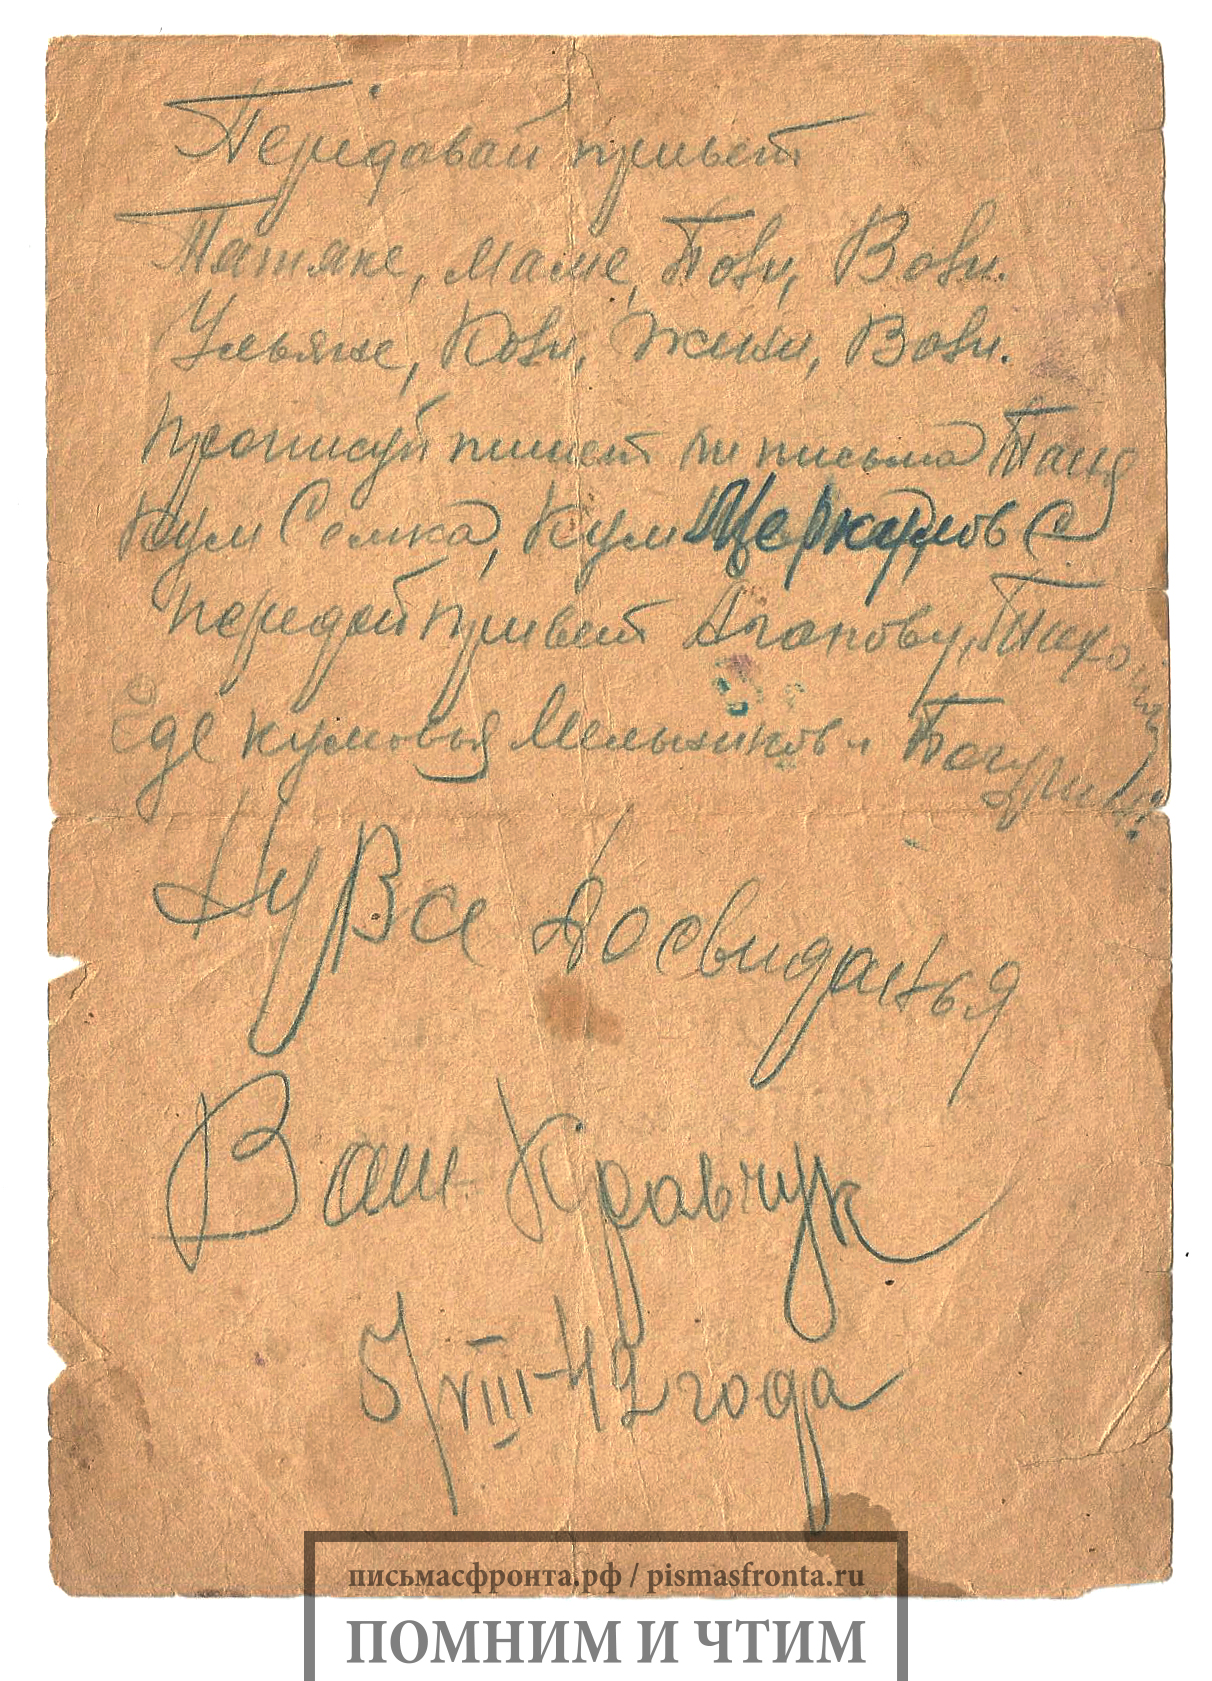 Передавай привет
Татяне, маме, Вови.
Ульяне, Жени, Вови.
Прописуй пишет ли письма Таня
Кум Сомка, Кум
Передай привет Агапову,
Где кумовья Мельников и
Ну Все досвиданья
Ваш Кравчук
5/VIII-42 года
письмасфронта.рф / pismasfronta.ru
ПОМНИМ И ЧТИМ